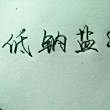 低钠盐